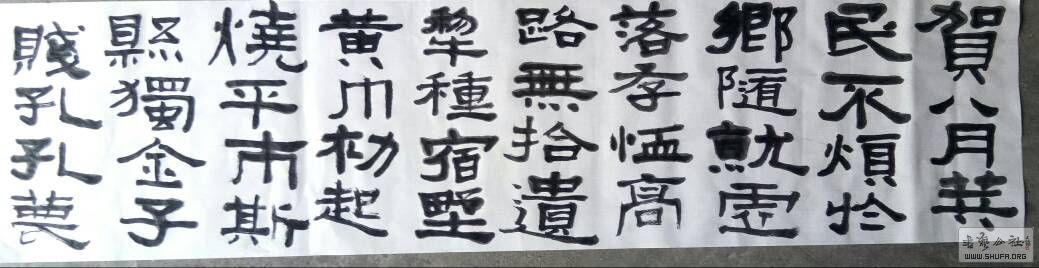 賀八月筭
民不煩於
鄉隨就虛
落存恤高
路無拾遺
犂種宿野
黃巾初起
燒平市斯
縣獨全子
賤孔孔蔑
書藝公社
WWW.SHUFA.ORG